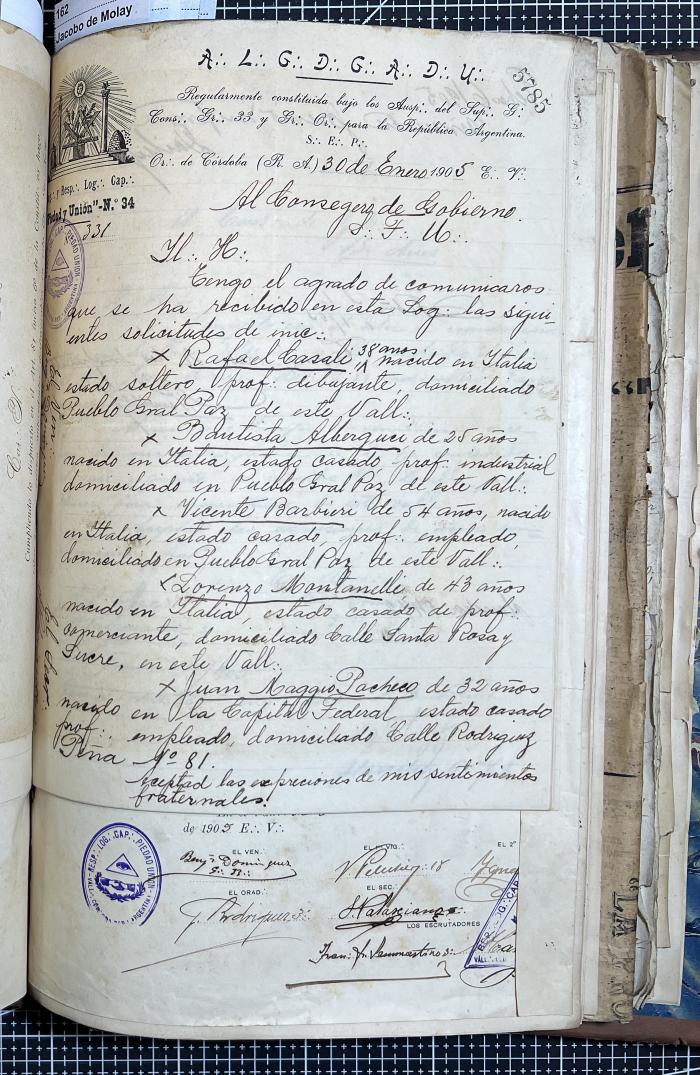 162
Jacobo de Molay
A∴ L∴ G∴ D∴ G∴ A∴ D∴ U∴
5785
Regularmente constituida bajo los Ausp∴ del Sup∴ G∴
Cons∴ Gr∴ 33 y Gr∴ Or∴ para la República Argentina.
S∴ E∴ P∴
Or∴ de Córdoba (R. A.) 30 de Enero 1905 E∴ V∴
y Resp∴ Log∴ Cap∴
y Unión"-N.º 34
331
Al Consegero de Gobierno.
S∴ F∴ U∴
Il∴ H∴
Tengo el agrado de comunicaros
que se ha recibido en esta Log∴ las sigui-
entes solicitudes de inic∴
x Rafael Casali 38 años nacido en Italia
estado soltero, prof∴ dibujante, domiciliado
Pueblo Gral Paz de este Vall∴
x Bautista Alberguci de 25 años
nacido en Italia, estado casado, prof∴ industrial
domiciliado en Pueblo Gral Paz de este Vall∴
x Vicente Barbieri de 54 años, nacido
en Italia, estado casado, prof∴ empleado,
domiciliado en Pueblo Gral Paz de este Vall∴
x Lorenzo Montanelli de 43 años
nacido en Italia, estado casado de prof∴
comerciante, domiciliado Calle Santa Rosa y
Sucre, en este Vall∴
x Juan Maggio Pacheco de 32 años
nacido en la Capital Federal estado casado
prof∴ empleado, domiciliado Calle Rodriguez
Peña Nº 81.
Aceptad las expreciones de mis sentimientos
fraternales!
de 1905 E∴ V∴
EL VEN∴
EL 1er VIG∴
EL 2º
Benj. Dominguez
EL ORAD∴
EL SEC∴
J. Rodriguez
LOS ESCRUTADORES
RESP∴ LOG∴ CAP∴ PIEDAD UNION